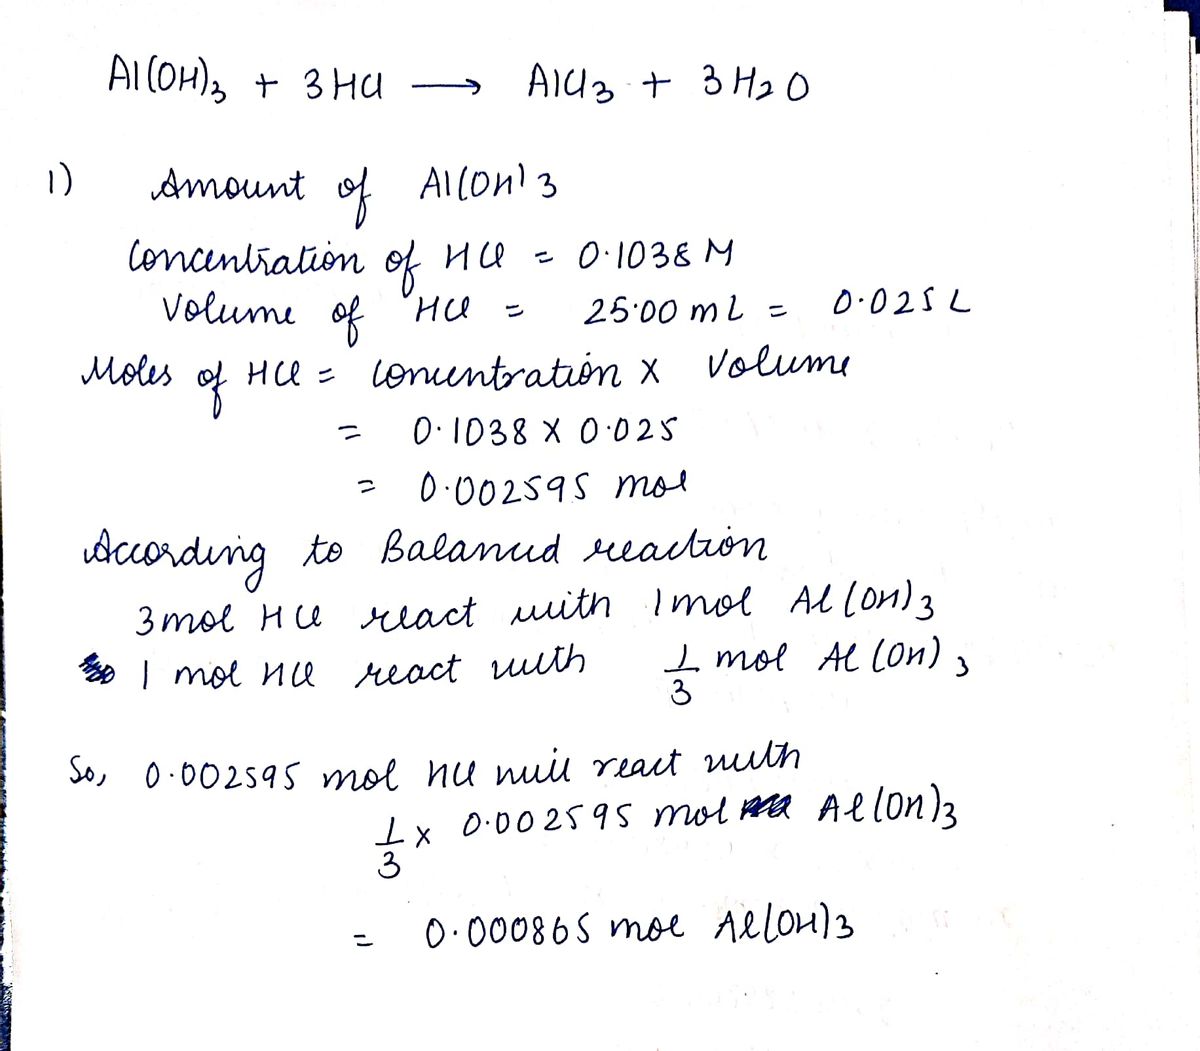 Al(OH)₃ + 3HCl ⟶ AlCl₃ + 3H₂O
1) Amount of Al(OH)3
Concentration of HCl = 0.1038 M
Volume of HCl = 25.00 mL = 0.025 L
Moles of HCl = Concentration × Volume
= 0.1038 × 0.025
= 0.002595 mol
According to Balanced reaction
3 mol HCl react with 1 mol Al(OH)3
1 mol HCl react with 1/3 mol Al(OH)3
So, 0.002595 mol HCl will react with
1/3 × 0.002595 mol Al(OH)3
= 0.000865 mol Al(OH)3